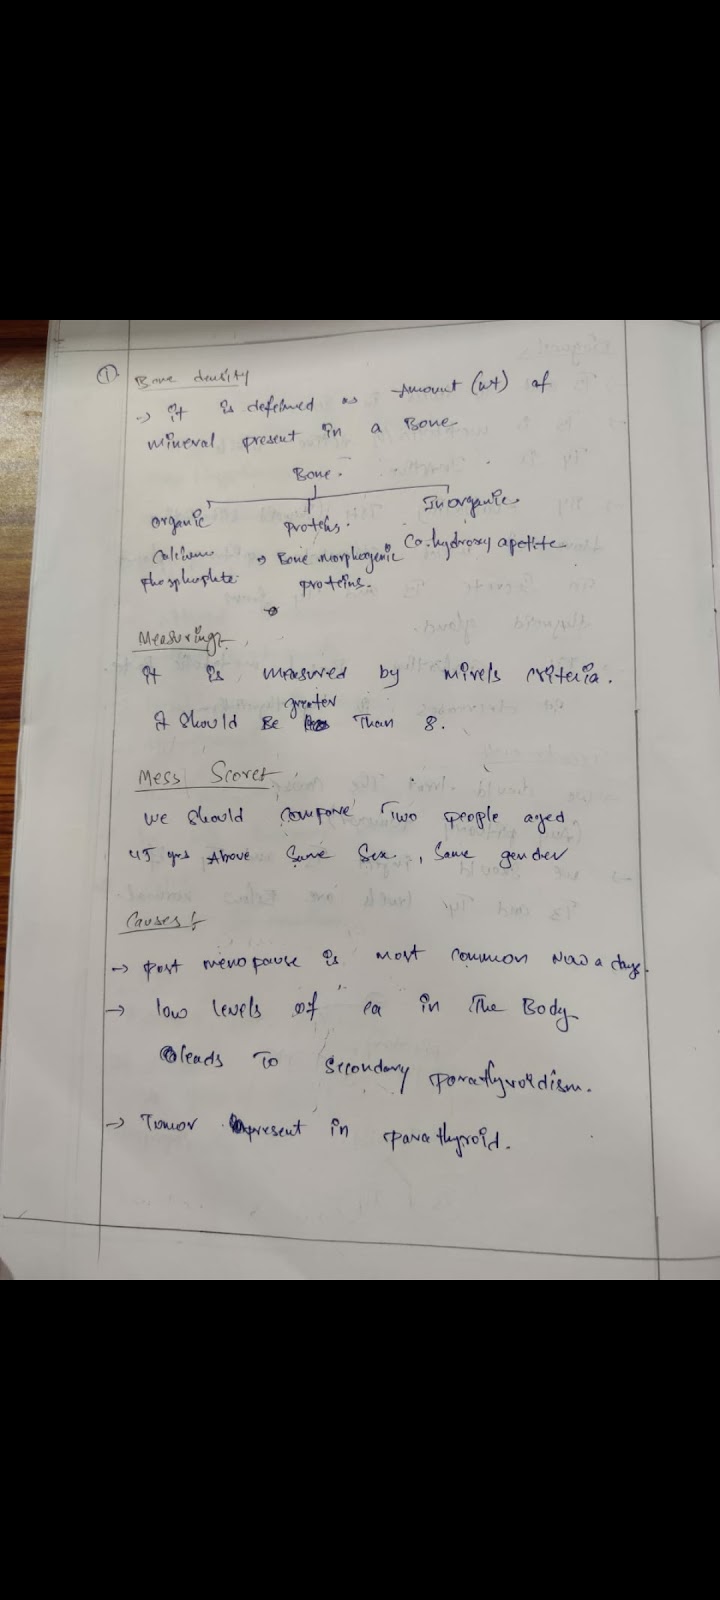 ① Bone density
→ it is defeined as Amount (wt) of
mineral present in a Bone
Bone.
organic proteins. Inorganic
Calcium → Bone morphogenic Ca. hydroxy apetite
phosphate proteins.
Measuring:-
it is measured by mirels criteria.
greater
it should Be Than 8.
Mess Score:
we should compare Two people aged
45 yrs Above Same Sex, Same gender
Causes:-
→ post menopause is most common now a days.
→ low levels of ca in The Body
leads To Secondary parathyroidism.
→ Tumor present in parathyroid.